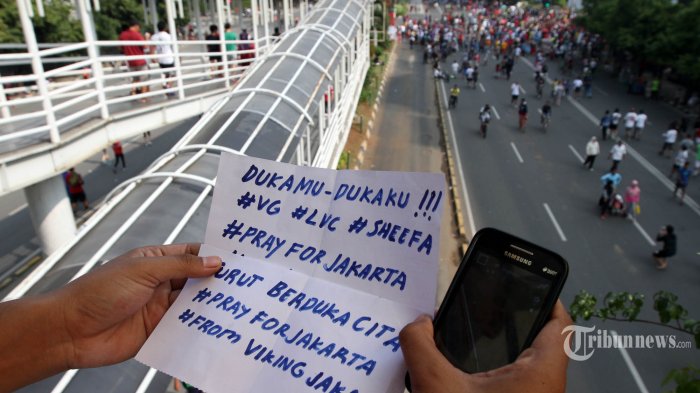 DUKAMU-DUKAKU !!!
#VG #LVC #SHEEFA
#PRAY FOR JAKARTA
URUT BERDUKA CITA
#PRAY FOR JAKARTA
#FROM VIKING JAKA
SAMSUNG
DUOS
Tribunnews.com